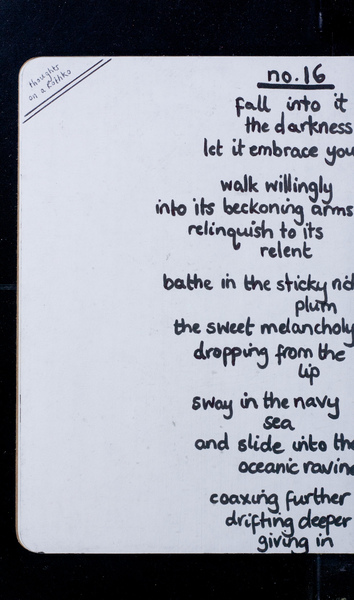 thoughts
on a Rothko
no.16
fall into it
the darkness
let it embrace you
walk willingly
into its beckoning arms
relinquish to its
relent
bathe in the sticky
plum
the sweet melancholy
dropping from the
lip
sway in the navy
sea
and slide into the
oceanic ravine
coaxing further
drifting deeper
giving in